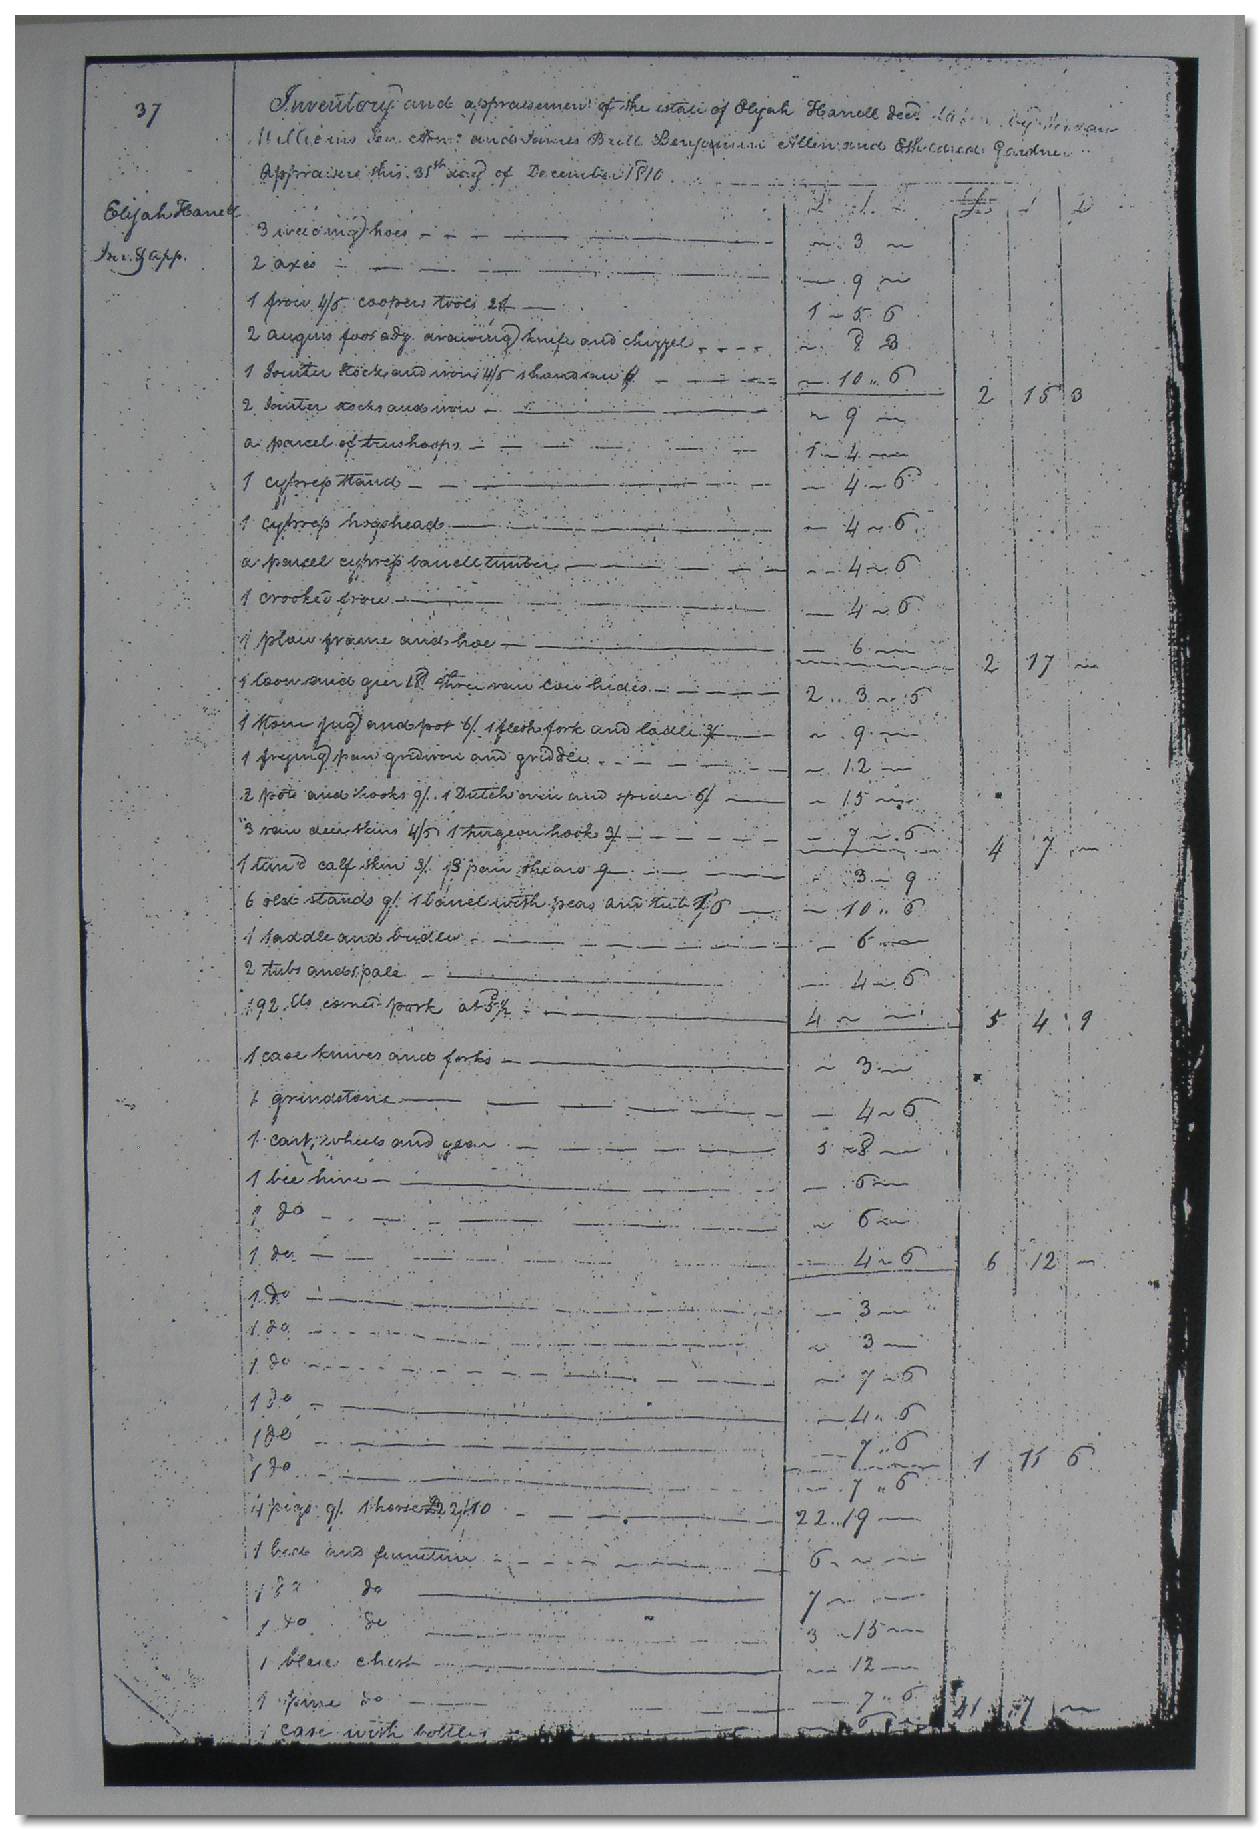 37
Inventory and appraisement of the estate of Elijah Harrell decd. taken by
Williams and James Brett Benjamin Allen and Gardner
Appraisers this 31th day of December 1810
Elijah Harrell
Inv. & app.
£ s D
3 weeding hoes ~ 3 ~
2 axes — 9 ~
1 frow 4/6 coopers tools 21/ 1 ~ 5 6
2 augurs foot adz drawing knife and chizzel ~ 8 3
1 Jointer stock and iron 4/6 1 handsaw 6/ ~ 10 " 6 2 15 3
2 Jointer stocks and iron ~ 9 ~
a parcel of trushoops 1 ~ 4 ~
1 cypress stand ~ 4 ~ 6
1 cypress hogshead ~ 4 ~ 6
a parcel cypress barrell timber ~ 4 ~ 6
1 crooked frow — 4 ~ 6
1 plow frame and hoe — 6 ~ 2 17 ~
1 loom and gier three raw cow hides 2 .. 3 ~ 6
1 stone jug and pot 6/ 1 flesh fork and ladle 3/ ~ 9 ~
1 frying pan gridiron and griddle ~ 12 ~
2 pots and hooks 9/ 1 Dutch oven and spider 6/ ~ 15 ~
3 raw deer skins 4/6 1 sturgeon hook 3/ ~ 7 ~ 6 4 7 ~
1 tan'd calf skin 3/ 1 pair shears 9 ~ 3 ~ 9
6 old stands 9/ 1 barrel with peas and tub 1/6 ~ 10 " 6
1 saddle and bridle ~ 6 ~
2 tubs and 1 pale — 4 ~ 6
192 lbs corned pork at 4 ~ ~ 5 4 9
1 case knives and forks ~ 3 ~
1 grindstone — 4 ~ 6
1 cart, wheels and gear 5 ~ 8 ~
1 bee hive — 6 ~
1 do ~ 6 ~
1 do — 4 ~ 6 6 12 ~
1 do — 3 ~
1 do ~ 3 ~
1 do ~ 7 ~ 6
1 do ~ 4 " 6
1 do — 7 " 6 1 15 6
1 do — 7 " 6
4 pigs 9/ 1 horse £22/10 22 .. 19 ~
1 bed and furniture 6 ~ ~
1 do do 7 ~ ~
1 do do 3 ~ 15 ~
1 blue chest — 12 ~
1 pine do — 7 " 6 41 7 ~
1 case with bottles ~ 6 ~